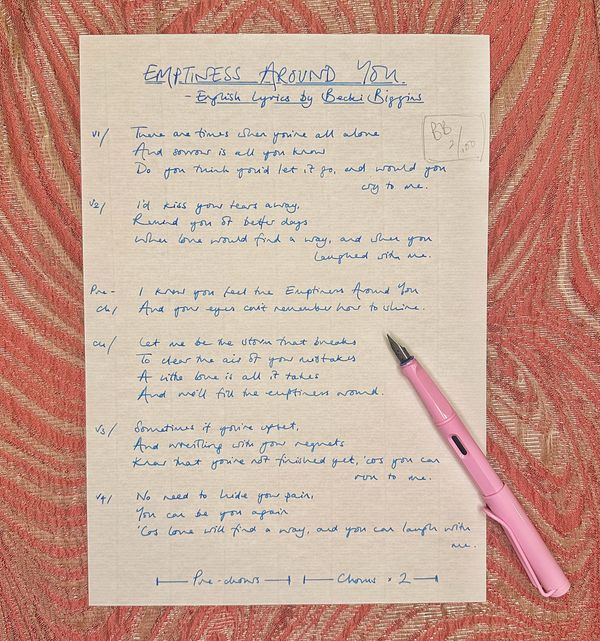 EMPTINESS AROUND YOU.
- English Lyrics by Becki Biggins
BB 2/100
V1/ There are times when you're all alone
And sorrow is all you know
Do you think you'd let it go, and would you
cry to me.
V2/ I'd kiss your tears away,
Remind you of better days
When love would find a way, and when you
laughed with me.
Pre- I know you feel the Emptiness Around You
Ch/ And your eyes can't remember how to shine.
CH/ Let me be the storm that breaks
To clear the air of your mistakes
A little love is all it takes
And we'll fill the emptiness around.
V3/ Sometimes if you're upset,
And wrestling with your regrets
Know that you're not finished yet, 'cos you can
run to me.
V4/ No need to hide your pain,
You can be you again
'Cos love will find a way, and you can laugh with
me.
Pre-chorus Chorus × 2